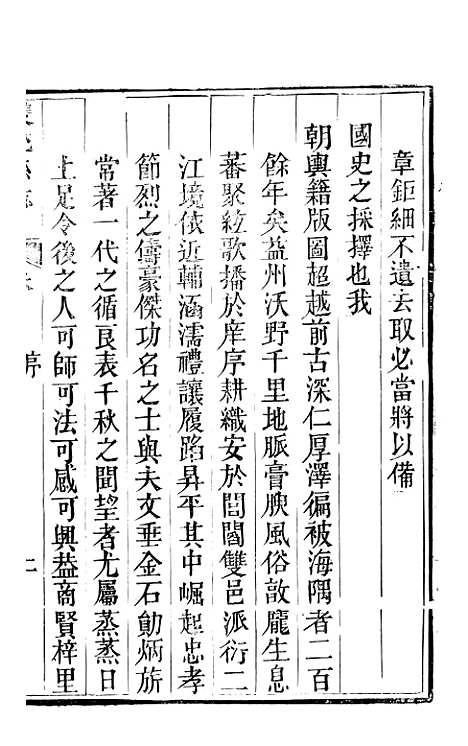 章鉅細不遺去取必當將以備
國史之採擇也我
朝輿籍版圖超越前古深仁厚澤徧被海隅者二百
餘年矣益州沃野千里地脈膏腴風俗敦龐生息
蕃聚絃歌播於庠序耕織安於閭閻雙邑派衍二
江境依近輔涵濡禮讓履蹈昇平其中崛起忠孝
節烈之儔豪傑功名之士與夫文垂金石勛炳旂
常著一代之循良表千秋之聞望者尤屬蒸蒸日
上足令後之人可師可法可感可興葢商賢梓里
序 二